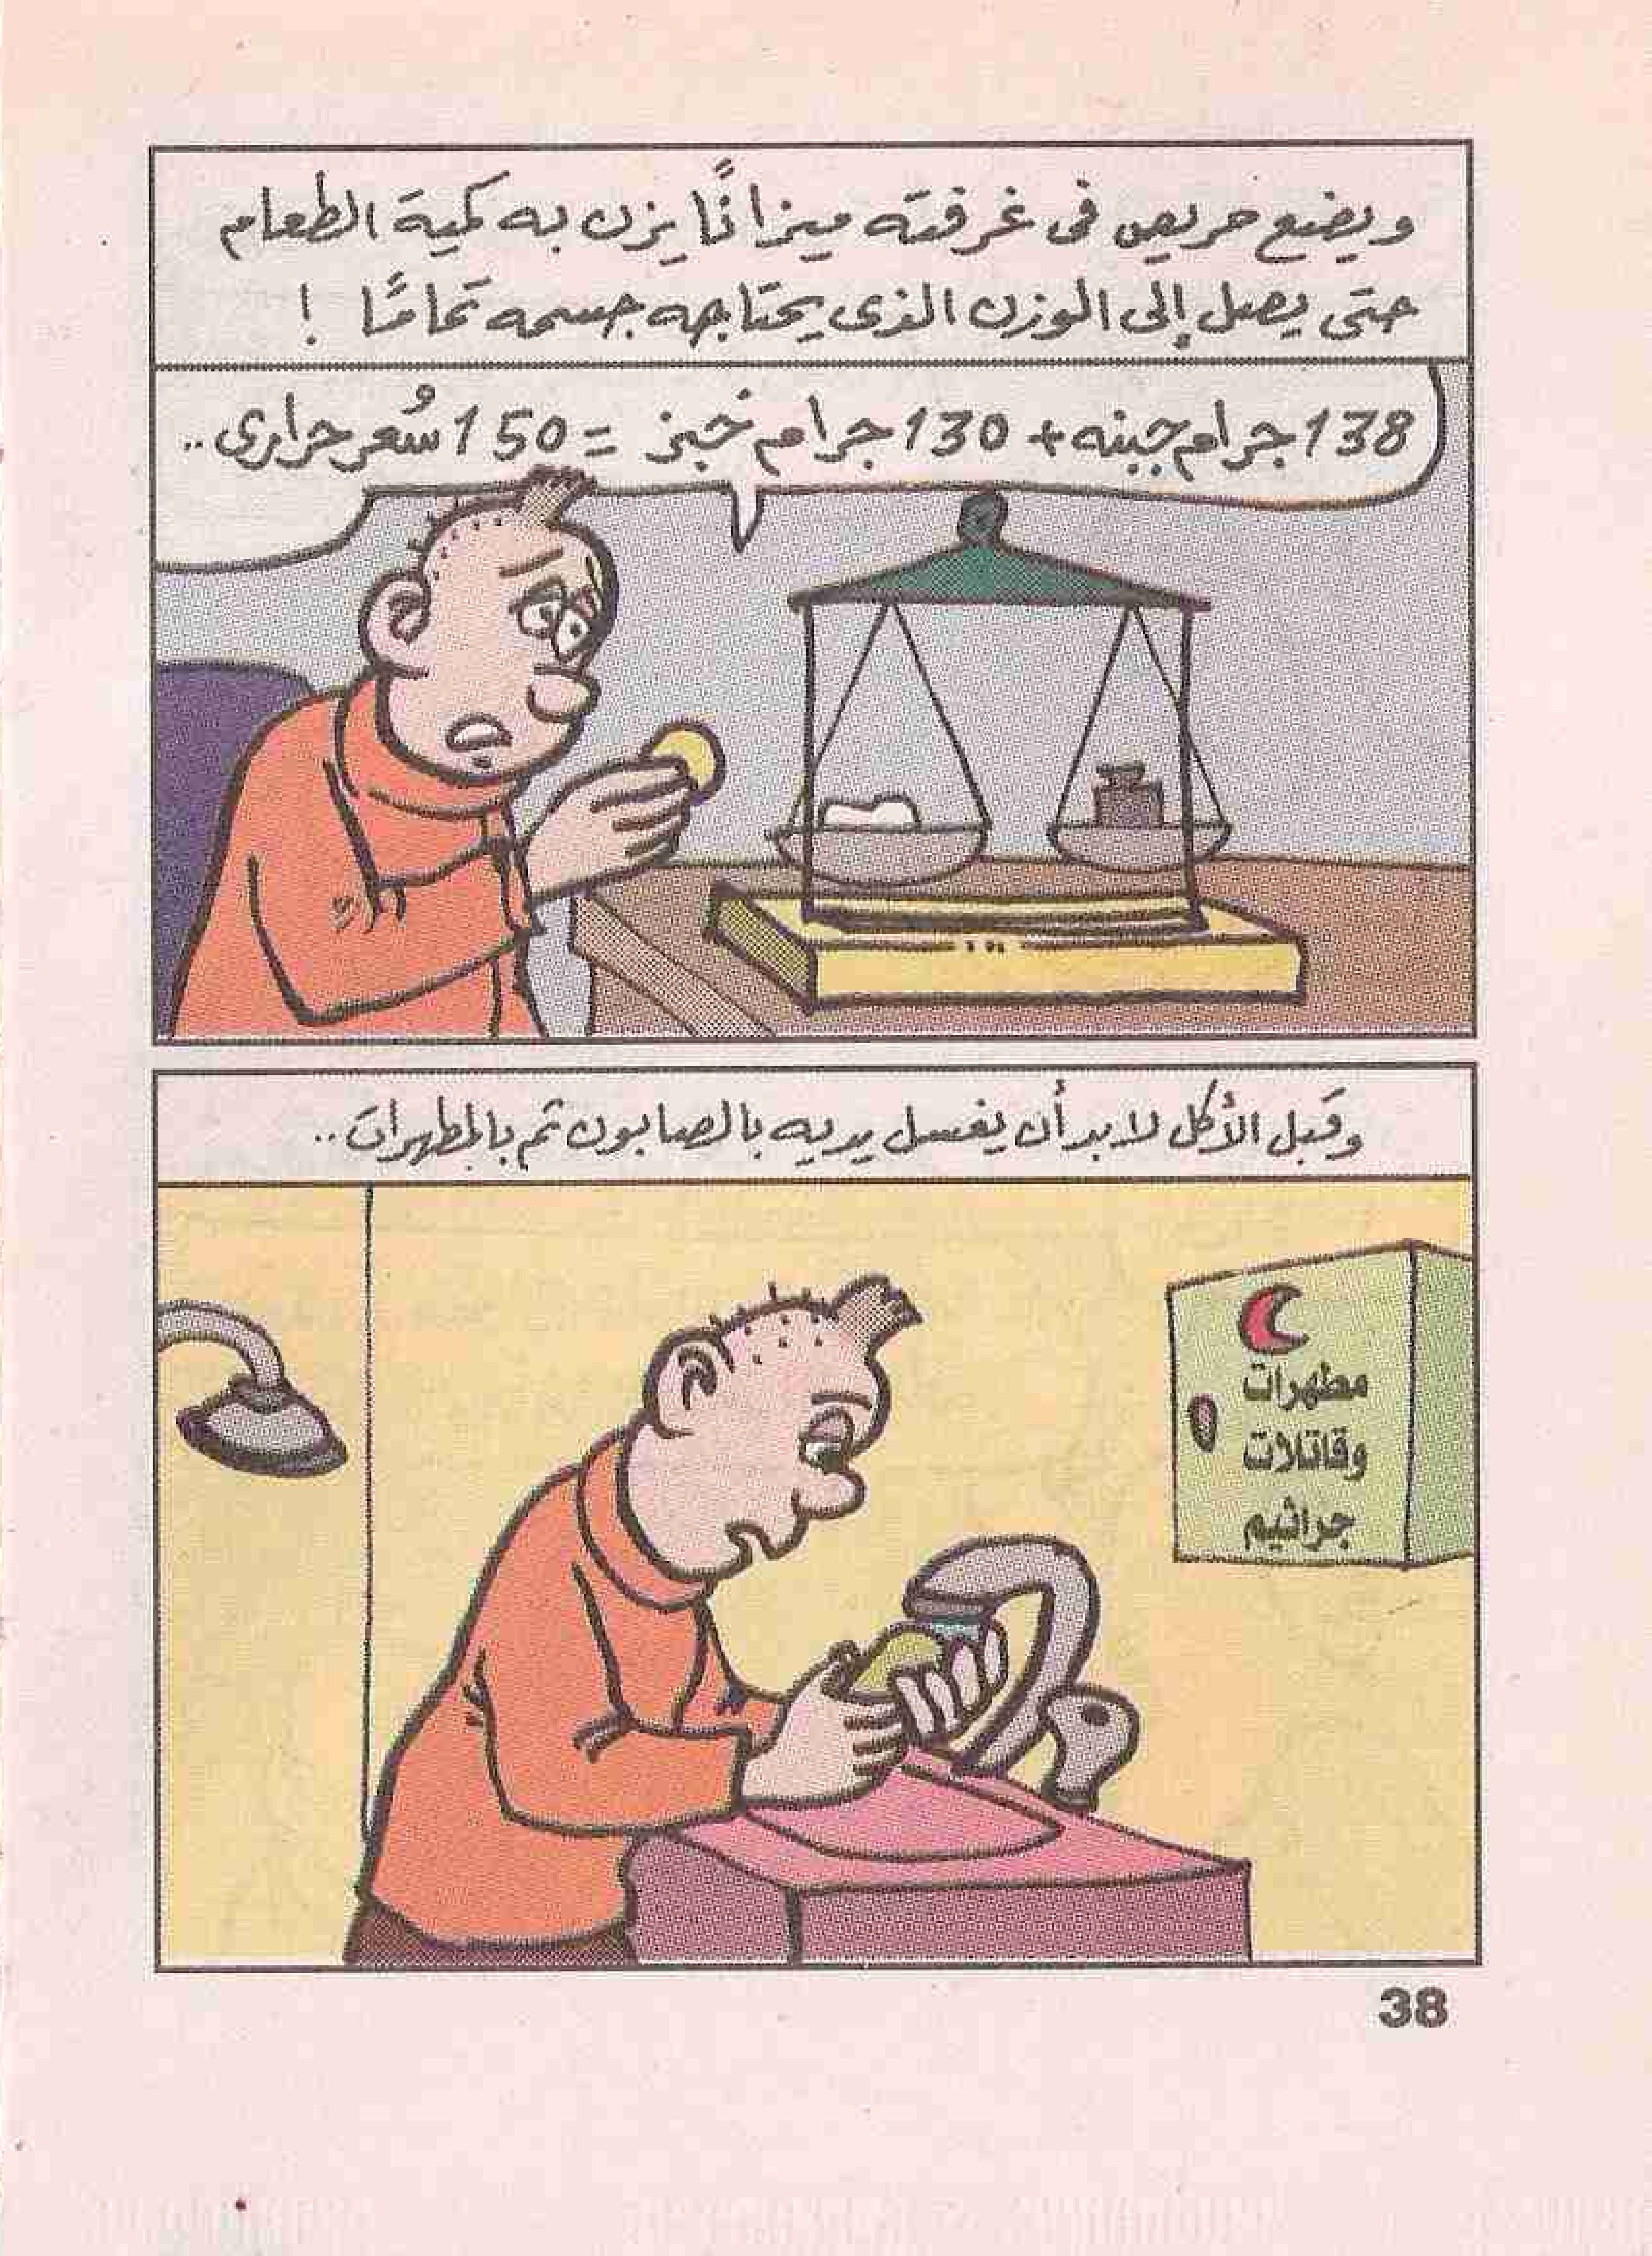 ويضع حريص فى غرفته ميزانًا يزن به كمية الطعام
حتى يصل إلى الوزن الذى يحتاجه جسمه تمامًا !
138 جرام جبنه + 130 جرام خبز = 150 سُعر حرارى ..
وقبل الأكل لابد أن يغسل يديه بالصابون ثم بالمطهرات ..
مطهرات
وقاتلات
جراثيم
38